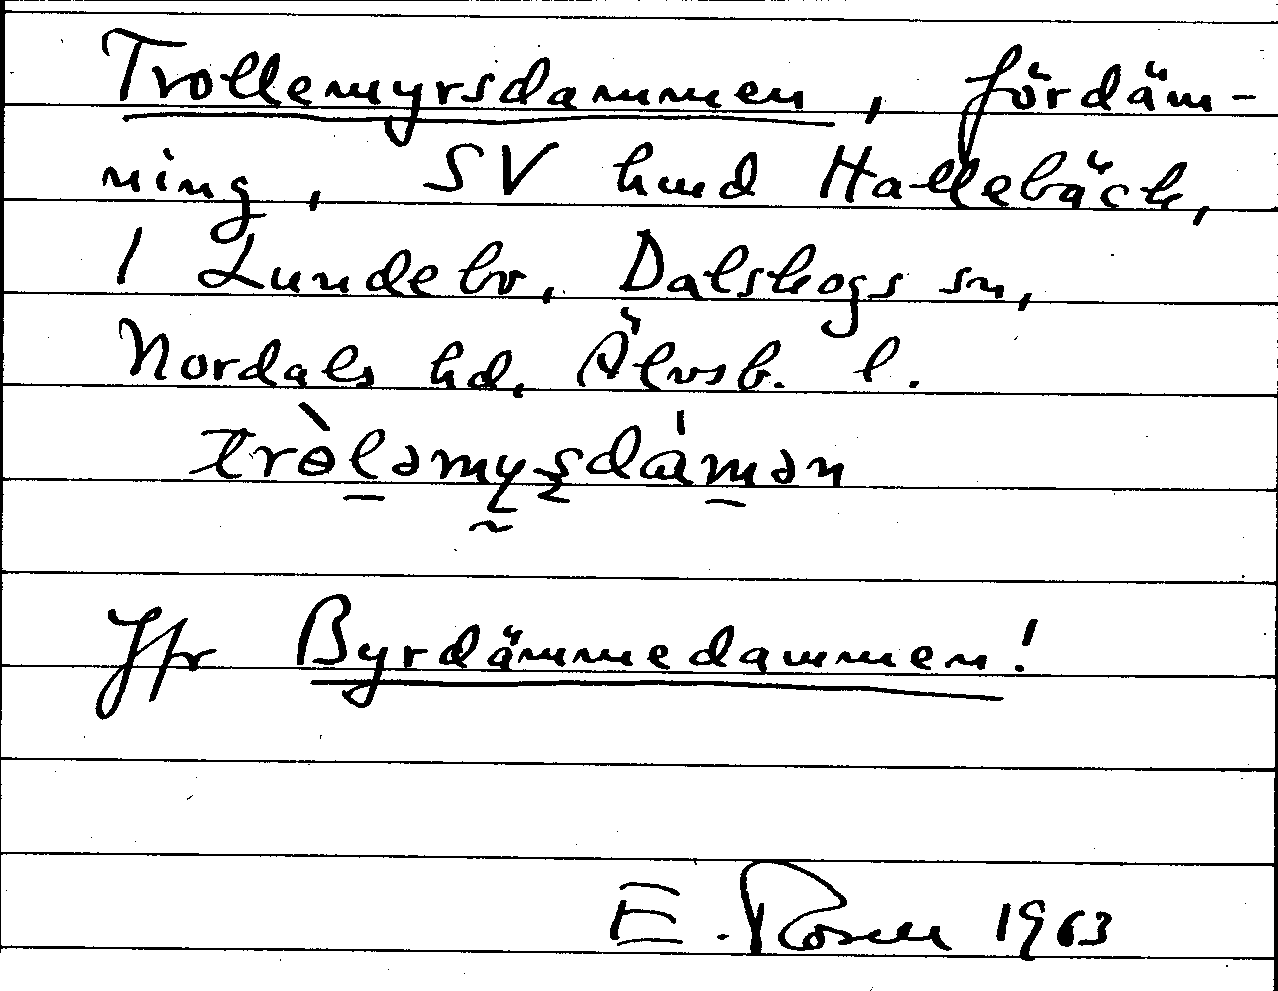 Trollemyrsdammen, fördäm-
ning, SV hmd Hallebäck,
1 Lundebo, Dalskogs sn,
Nordals hd, Älvsb. l.
trɵ̀lǝmyʂdámǝn
Jfr Byrdämmedammen!
E. Rosell 1963